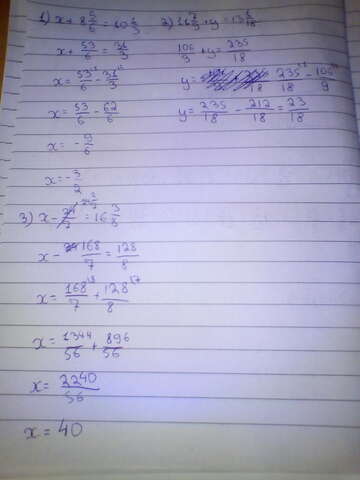 1) x + 8 5/6 = 10 1/3
x + 53/6 = 31/3
x = 53/6 - 31/3
x = 53/6 - 62/6
x = - 9/6
x = - 3/2
+ y =
106/9 + y = 235/18
y = 235/18 - 106/9
y = 235/18 - 212/18 = 23/18
3) x - = 16
x - 168/7 = 128/8
x = 168/7 + 128/8
x = 1344/56 + 896/56
x = 2240/56
x = 40